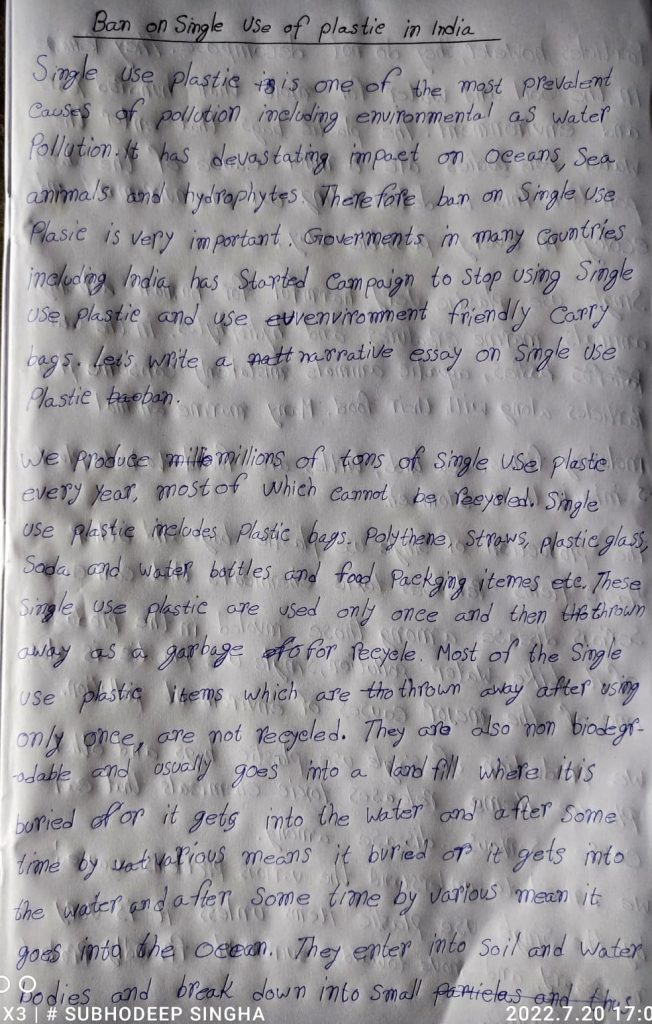 Ban on Single Use of plastic in India
Single use plastic is is one of the most prevalent
Causes of pollution including environmental as water
Pollution. It has devastating impact on oceans, Sea
animals and hydrophytes. Therefore ban on Single use
Plasic is very important. Goverments in many Countries
including India has Started Campaign to Stop using Single
use plastic and use envenvironment friendly Carry
bags. Let's write a natt narrative essay on Single Use
Plastic baoban.
We Produce millio millions of tons of Single Use plastc
every year, most of which Cannot be recycled. Single
use plastic includes Plastic bags. Polythene, Straws, plastic glass,
Soda and water bottles and food Packging itemes etc. These
Single Use plastic are used only once and then tho thrown
away as a garbage of o for recycle. Most of the Single
use plastic items which are tho thrown away after using
only once, are not recycled. They are also non biodegr-
-adable and usually goes into a land fill where it is
buried of or it gets into the Water and after Some
time by vat various means it buried or it gets into
the water and after Some time by various mean it
goes into the ocean. They enter into Soil and Water
bodies and break down into Small particles and thus
X3 | # SUBHODEEP SINGHA
2022.7.20 17:0